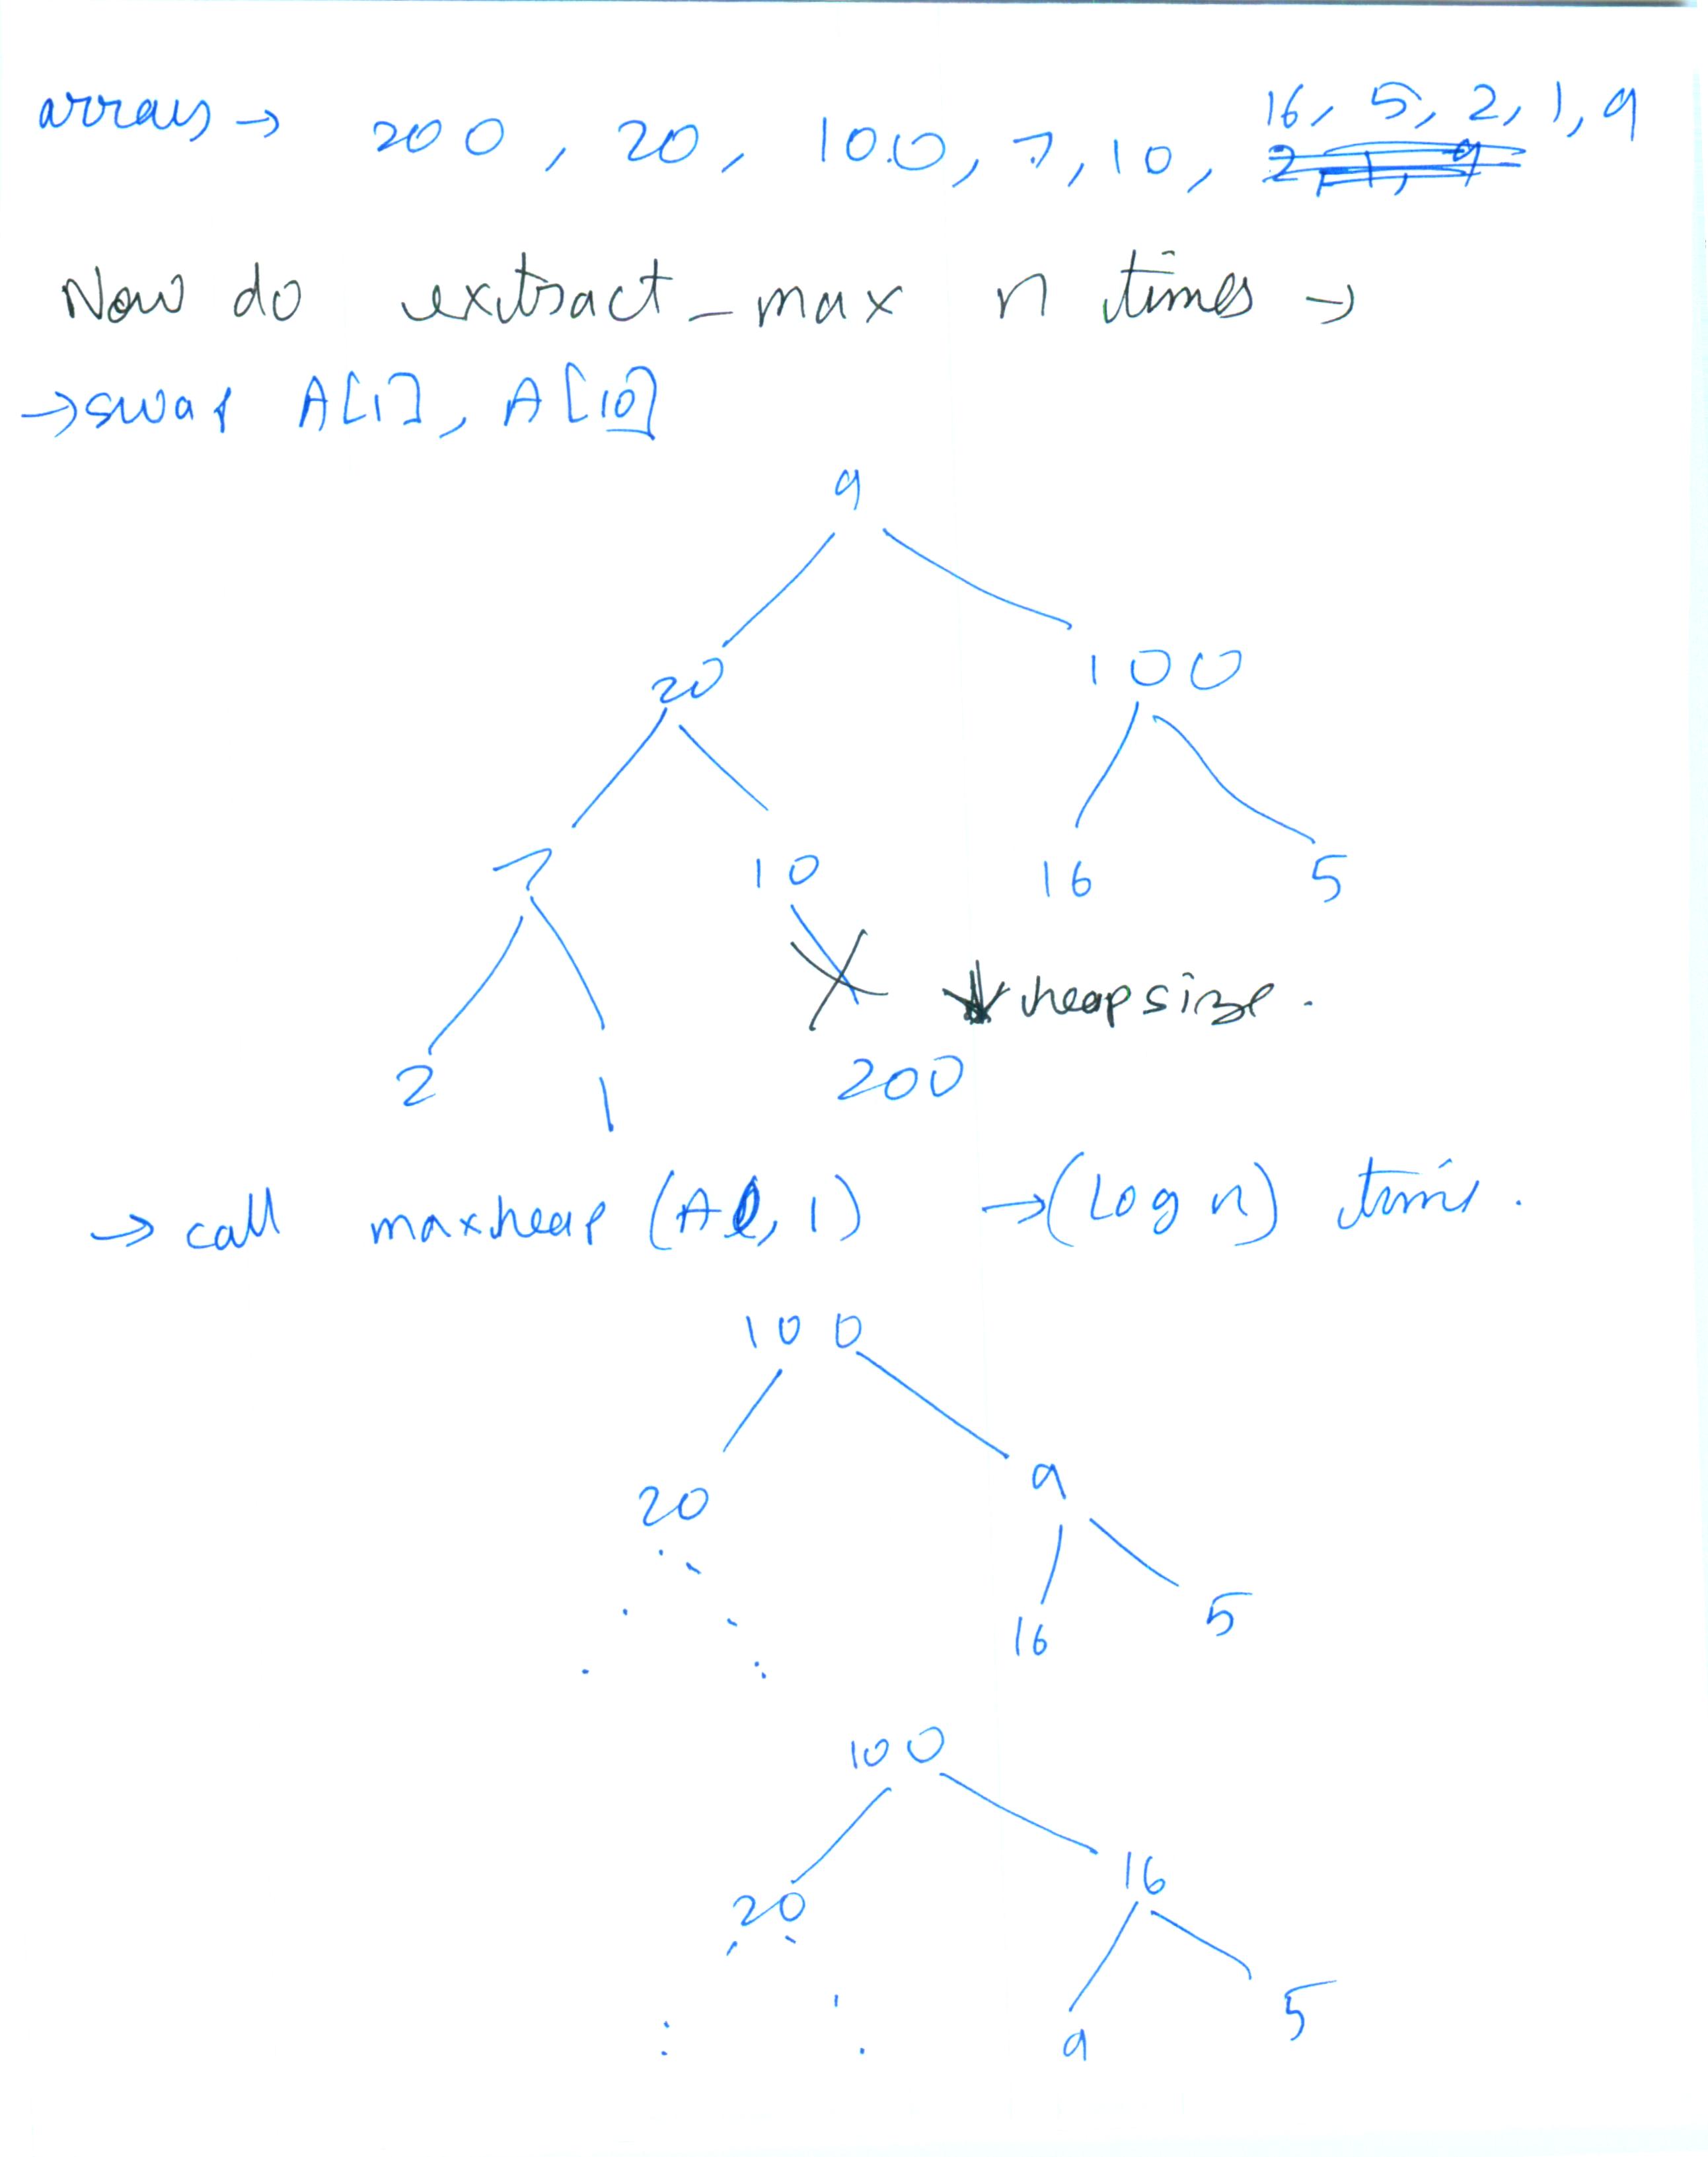 array → 200, 20, 100, 7, 10, 16, 5, 2, 1, 9
Now do extract-max n times →
→ swap A[1], A[10]
9
20 100
7 10 16 5
↓ heapsize.
2 1 200
→ call maxheap (A, 1) → (log n) time.
100
20 9
16 5
100
20 16
9 5